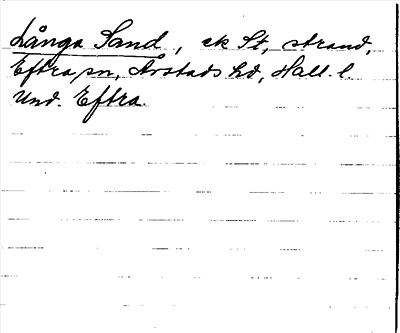 Långa Sand, ek St, strand,
Eftra sn, Årstads hd, Hall. l.
Und. Eftra.